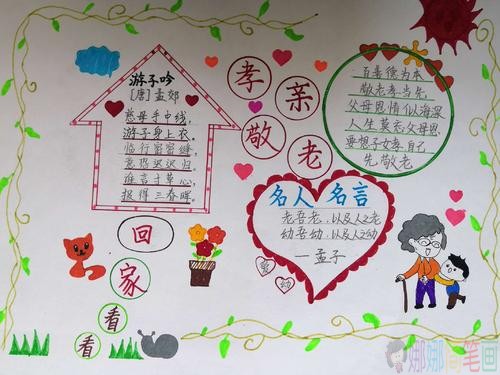 游子吟
[唐]孟郊
慈母手中线,
游子身上衣。
临行密密缝,
意恐迟迟归。
谁言寸草心,
报得三春晖。
回
家
看
看
孝
亲
敬
老
百善德为本
敬老孝当先
父母恩情似海深
人生莫忘父母恩
要想子女孝自己
先敬老
名人名言
老吾老,以及人之老
幼吾幼,以及人之幼
—孟子
爱
幼
娜娜简笔画